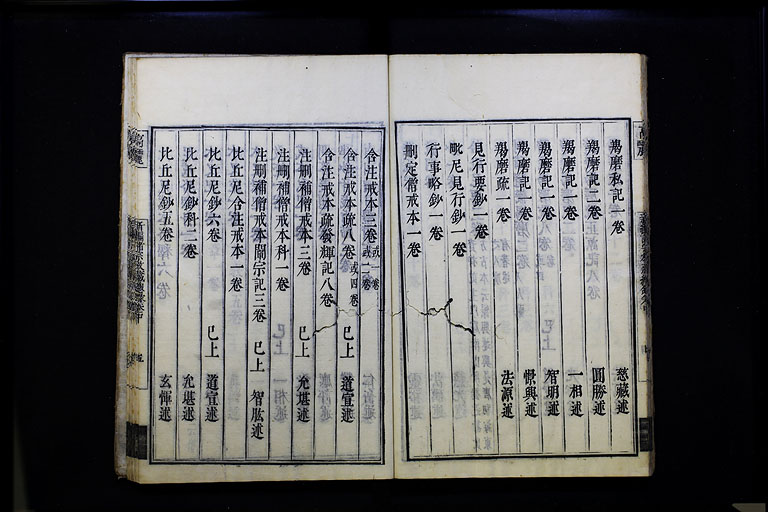 羯磨私記一卷 慈藏述
羯磨記二卷 圓勝述
羯磨記一卷 一相述
羯磨記一卷 智明述
羯磨記一卷 憬興述
羯磨疏一卷 法源述
見行要鈔一卷
毗尼見行鈔一卷
行事略鈔一卷
刪定僧戒本一卷
含注戒本三卷或一卷或二卷
含注戒本疏八卷或四卷 已上 道宣述
含注戒本疏發輝記八卷
注刪補僧戒本三卷 已上 允堪述
注刪補僧戒本科一卷
注刪補僧戒本關宗記三卷 已上 智肱述
比丘尼含注戒本一卷
比丘尼鈔六卷 已上 道宣述
比丘尼鈔科二卷 允堪述
比丘尼鈔五卷 玄惲述